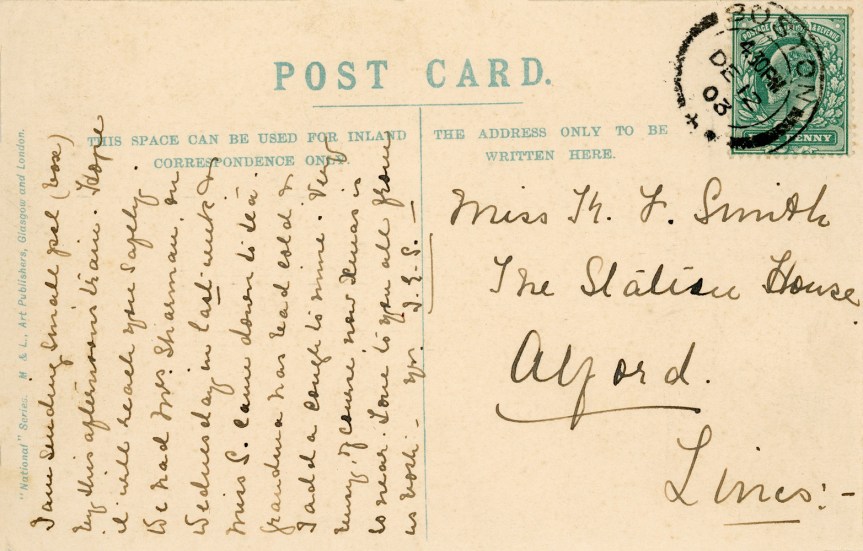 POST CARD.
THIS SPACE CAN BE USED FOR INLAND
CORRESPONDENCE ONLY.
THE ADDRESS ONLY TO BE
WRITTEN HERE.
BOSTON
4.30PM
DE 12
03
POSTAGE & REVENUE
PENNY
"National" Series. M & L., Art Publishers, Glasgow and London.
I am sending small pcl (box)
by this afternoons train. I hope
it will reach you safely.
We had Mrs. Sharman on
Wednesday in last week &
Miss S. came down to tea.
Grandma has bad cold &
I add a cough to mine. Very
busy, of course now Xmas is
so near. Love to you all from
us both - Yr.
Miss K. F. Smith
The Station House
Alford.
Lincs:-